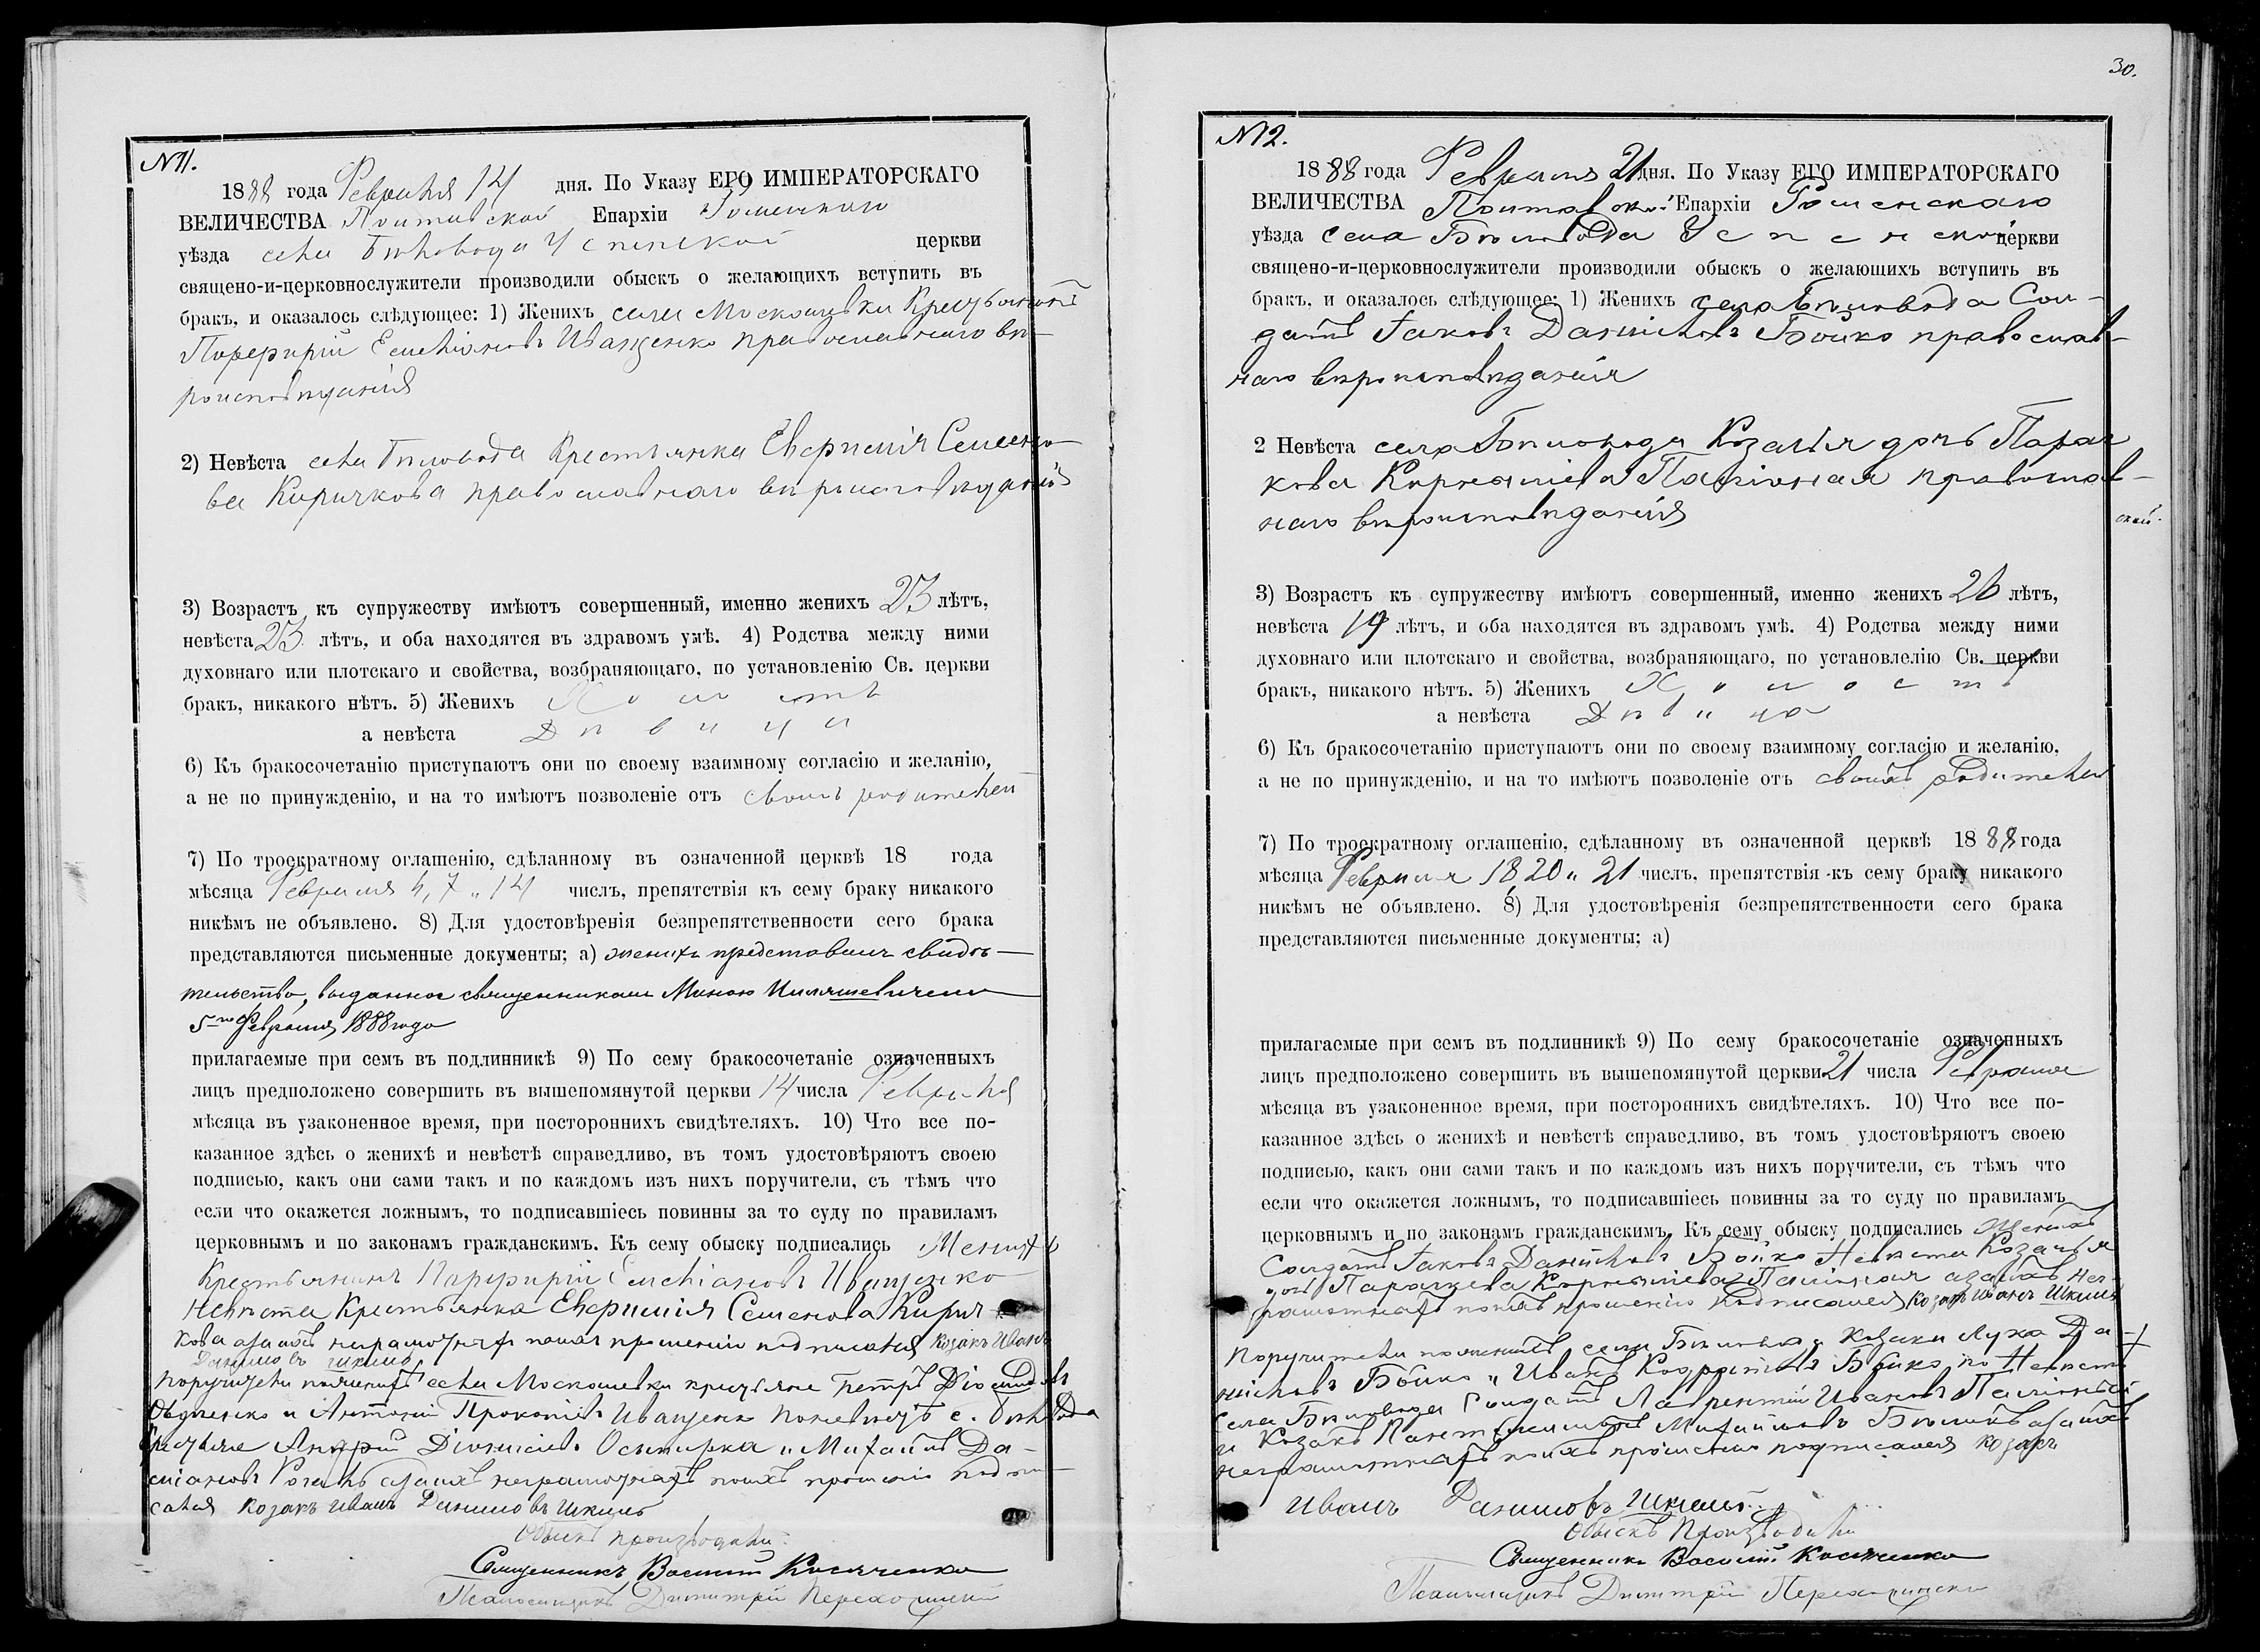 № 11.
1888 года Февраля 14 дня. По Указу ЕГО ИМПЕРАТОРСКАГО
ВЕЛИЧЕСТВА Полтавской Епархіи Роменскаго
уѣзда села Бѣловода Успенской церкви
священо-и-церковнослужители производили обыскъ о желающихъ вступить въ
бракъ, и оказалось слѣдующее: 1) Женихъ села Москалевки Крестьянинъ
Порфирій Емеліановъ Иващенко православнаго вѣ-
роисповѣданія
2) Невѣста села Бѣловода Крестьянка Евфимія Семено-
ва Киричкова православнаго вѣроисповѣданія
3) Возрастъ къ супружеству имѣютъ совершенный, именно женихъ 23 лѣтъ,
невѣста 23 лѣтъ, и оба находятся въ здравомъ умѣ. 4) Родства между ними
духовнаго или плотскаго и свойства, возбраняющаго, по установленію Св. церкви
бракъ, никакого нѣтъ. 5) Женихъ Холостъ
а невѣста Дѣвица
6) Къ бракосочетанію приступаютъ они по своему взаимному согласію и желанію,
а не по принужденію, и на то имѣютъ позволеніе отъ своихъ родителей
7) По троекратному оглашенію, сдѣланному въ означенной церквѣ 18 года
мѣсяца Февраля 4, 7 и 14 числъ, препятствія къ сему браку никакого
никѣмъ не объявлено. 8) Для удостовѣренія безпрепятственности сего брака
представляются письменные документы; а) женихъ представилъ свидѣ-
тельство, выданное священникомъ Миною
5-го Февраля 1888 года
прилагаемые при семъ въ подлинникѣ 9) По сему бракосочетаніе означенныхъ
лицъ предположено совершить въ вышепомянутой церкви 14 числа Февраля
мѣсяца въ узаконенное время, при постороннихъ свидѣтеляхъ. 10) Что все по-
казанное здѣсь о женихѣ и невѣстѣ справедливо, въ томъ удостовѣряютъ своею
подписью, какъ они сами такъ и по каждомъ изъ нихъ поручители, съ тѣмъ что
если что окажется ложнымъ, то подписавшіесь повинны за то суду по правиламъ
церковнымъ и по законамъ гражданскимъ. Къ сему обыску подписались Женихъ
Крестьянинъ Порфирій Емеліановъ Иващенко
Невѣста Крестьянка Евфимія Семенова Кирич-
кова а за ихъ неграмотныхъ по ихъ прошенію подписался Козакъ Иванъ
Даниловъ Шкиль
Поручители по женихѣ села Москалевки крестьяне Петръ
и Антоній Прокопіевъ Иващенко по невѣстѣ с. Бѣловода
Крестьяне Андрей Діонисіевъ и Михаилъ Да-
міановъ а за ихъ неграмотныхъ по ихъ прошенію подпи-
сался Козакъ Иванъ Даниловъ Шкиль
Обыскъ производили:
Священникъ Василій Косяченко
Псаломщикъ Димитрій
30.
№ 12.
1888 года Февраля 21 дня. По Указу ЕГО ИМПЕРАТОРСКАГО
ВЕЛИЧЕСТВА Полтавской Епархіи Роменскаго
уѣзда села Бѣловода Успенской церкви
священо-и-церковнослужители производили обыскъ о желающихъ вступить въ
бракъ, и оказалось слѣдующее: 1) Женихъ села Бѣловода Сол-
датъ Іаковъ Даниловъ Бойко православ-
наго вѣроисповѣданія
2 Невѣста села Бѣловода Козачья дочь Параске-
кова Корниліева православ-
наго вѣроисповѣданія
ской.
3) Возрастъ къ супружеству имѣютъ совершенный, именно женихъ 26 лѣтъ,
невѣста 19 лѣтъ, и оба находятся въ здравомъ умѣ. 4) Родства между ними
духовнаго или плотскаго и свойства, возбраняющаго, по установлелію Св. церкви
бракъ, никакого нѣтъ. 5) Женихъ Холостъ
а невѣста Дѣвица
6) Къ бракосочетанію приступаютъ они по своему взаимному согласію и желанію,
а не по принужденію, и на то имѣютъ позволеніе отъ своихъ родителей
7) По троекратному оглашенію, сдѣланному въ означенной церквѣ 1888 года
мѣсяца Февраля 18, 20 и 21 числъ, препятствія къ сему браку никакого
никѣмъ не объявлено. 8) Для удостовѣренія безпрепятственности сего брака
представляются письменные документы; а)
прилагаемые при семъ въ подлинникѣ 9) По сему бракосочетаніе означенныхъ
лицъ предположено совершить въ вышепомянутой церкви 21 числа Февраля
мѣсяца въ узаконенное время, при постороннихъ свидѣтеляхъ. 10) Что все по-
казанное здѣсь о женихѣ и невѣстѣ справедливо, въ томъ удостовѣряютъ своею
подписью, какъ они сами такъ и по каждомъ изъ нихъ поручители, съ тѣмъ что
если что окажется ложнымъ, то подписавшіесь повинны за то суду по правиламъ
церковнымъ и по законамъ гражданскимъ. Къ сему обыску подписались Женихъ
Солдатъ Іаковъ Даниловъ Бойко Невѣста Козачья
дочь Параскева Корниліева а за ихъ не-
грамотныхъ по ихъ прошенію подписался Козакъ Иванъ Шкиль
Поручители по женихѣ села Бѣловода Козаки Лука Да-
ниловъ Бойко и Иванъ Кодратіевъ Бойко по Невѣстѣ
села Бѣловода Солдатъ Лаврентій Ивановъ
и Козакъ Пантелеимонъ Михайловъ а за ихъ
неграмотныхъ по ихъ прошенію подписался Козакъ
Иванъ Даниловъ Шкиль.
Обыскъ Производили
Священникъ Василій Косяченко
Псаломщикъ Димитрій